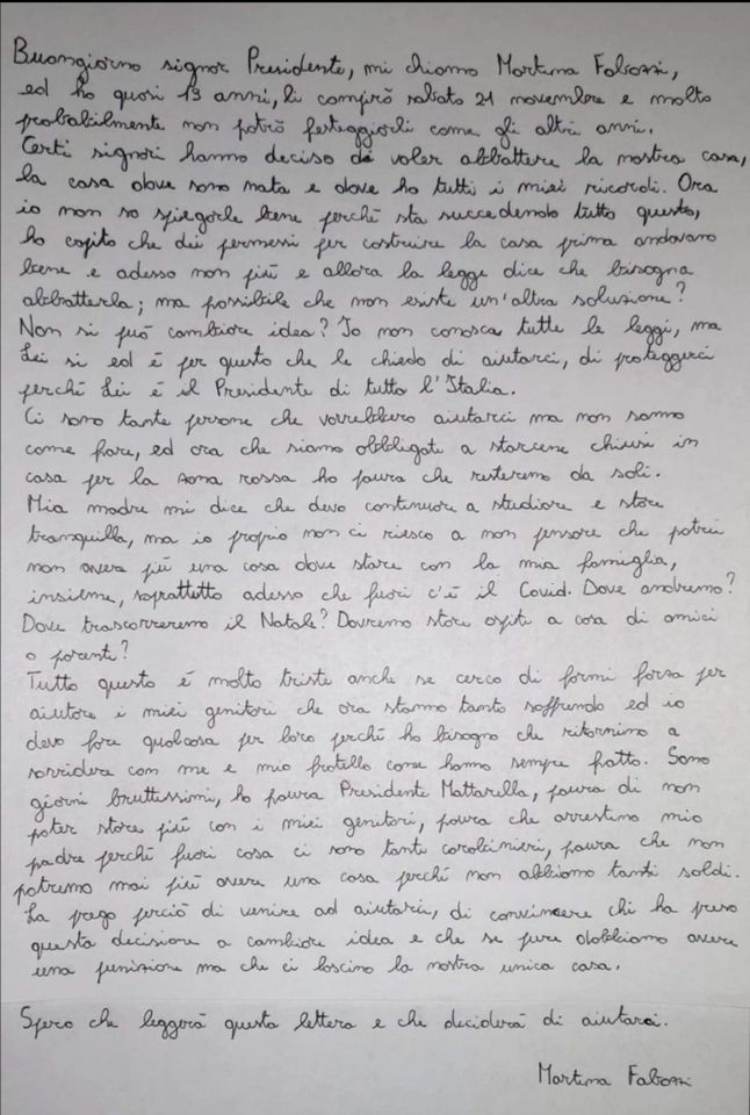 Buongiorno signor Presidente, mi chiamo Martina Fabozzi,
ed ho quasi 13 anni, li compirò sabato 21 novembre e molto
probabilmente non potrò festeggiarli come gli altri anni.
Certi signori hanno deciso di voler abbattere la nostra casa,
la casa dove sono nata e dove ho tutti i miei ricordi. Ora
io non so spiegarle bene perchè sta succedendo tutto questo,
ho capito che dei permessi per costruire la casa prima andavano
bene e adesso non più e allora la legge dice che bisogna
abbatterla; ma possibile che non esiste un'altra soluzione?
Non si può cambiare idea? Io non conosca tutte le leggi, ma
Lei si ed è per questo che le chiedo di aiutarci, di proteggerci
perchè Lei è il Presidente di tutta l'Italia.
Ci sono tante persone che vorrebbero aiutarci ma non sanno
come fare, ed ora che siamo obbligati a starcene chiusi in
casa per la zona rossa ho paura che resteremo da soli.
Mia madre mi dice che devo continuare a studiare e stare
tranquilla, ma io proprio non ci riesco a non pensare che potrei
non avere più una casa dove stare con la mia famiglia,
insieme, soprattutto adesso che fuori c'è il Covid. Dove andremo?
Dove trascorreremo il Natale? Dovremo stare ospiti a casa di amici
o parenti?
Tutto questo è molto triste anche se cerco di farmi forza per
aiutare i miei genitori che ora stanno tanto soffrendo ed io
devo fare qualcosa per loro perchè ho bisogno che ritornino a
sorridere con me e mio fratello come hanno sempre fatto. Sono
giorni bruttissimi, ho paura Presidente Mattarella, paura di non
poter stare più con i miei genitori, paura che arrestino mio
padre perchè fuori casa ci sono tanti carabinieri, paura che non
potremo mai più avere una casa perchè non abbiamo tanti soldi.
La prego perciò di venire ad aiutarci, di convincere chi ha preso
questa decisione a cambiare idea e che se pure dobbiamo avere
una punizione ma che ci lascino la nostra unica casa.
Spero che leggerà questa lettera e che deciderà di aiutarci.
Martina Fabozzi